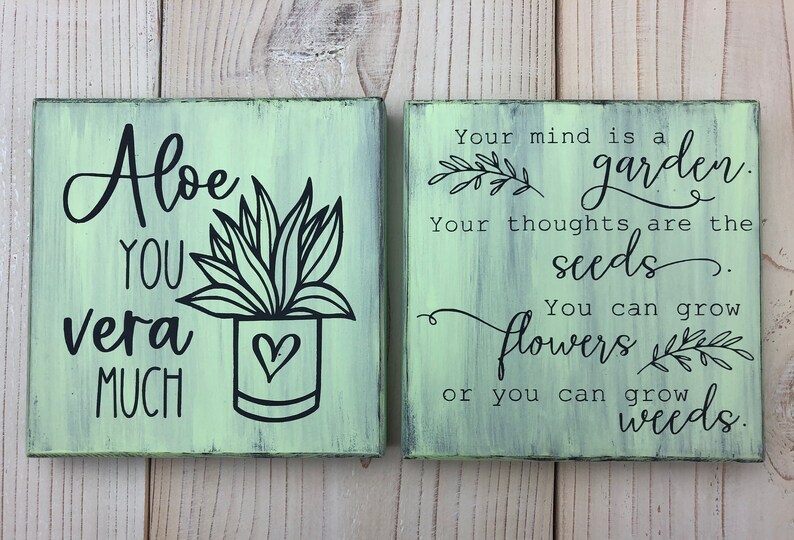 Aloe
YOU
vera
MUCH
Your mind is a
garden.
Your thoughts are the
seeds.
You can grow
flowers
or you can grow
weeds.